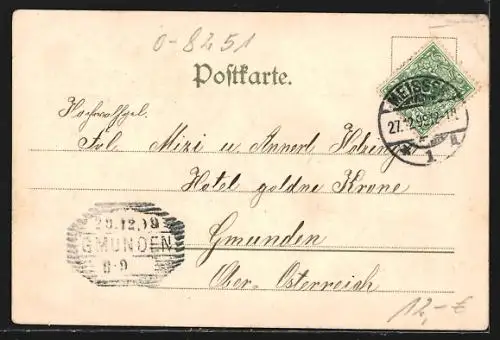 0-8251
Postkarte.
MEISSEN
27.12.99.12-1N.
* 1 a
Hochwohlgeb.
Frl. Mizi u. Annerl
Hotel goldne Krone
Gmunden
Ober-Österreich
29.12.99
GMUNDEN
8-9
12,-€